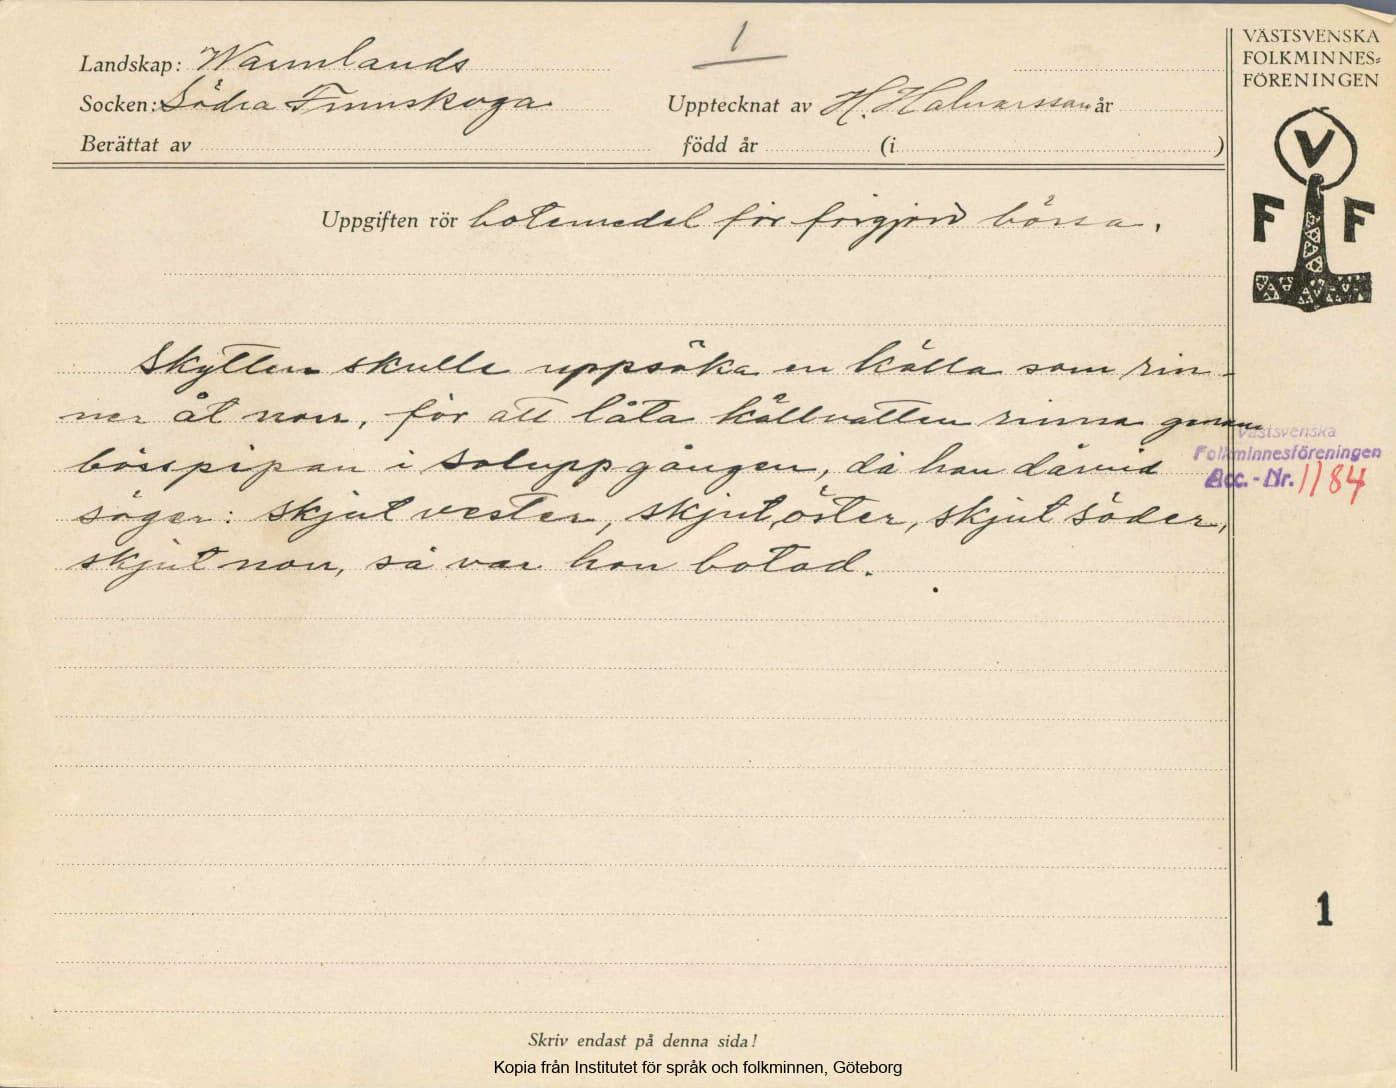 1
Landskap: Warmlands
Socken: Södra Finnskoga
Upptecknat av H. Halvarsson år
Berättat av
född år (i )
Uppgiften rör botemedel för förgjord bössa.
Skytten skulle uppsöka en källa som rin-
ner åt norr, för att låta källvatten rinna genom
bösspipan i soluppgången, då han därvid
säger: skjut vester, skjut öster, skjut söder,
skjut norr, så var hon botad.
Skriv endast på denna sida!
Kopia från Institutet för språk och folkminnen, Göteborg
VÄSTSVENSKA
FOLKMINNES=
FÖRENINGEN
V
F F
Västsvenska
Folkminnesföreningen
Acc. - Nr. 1184
1